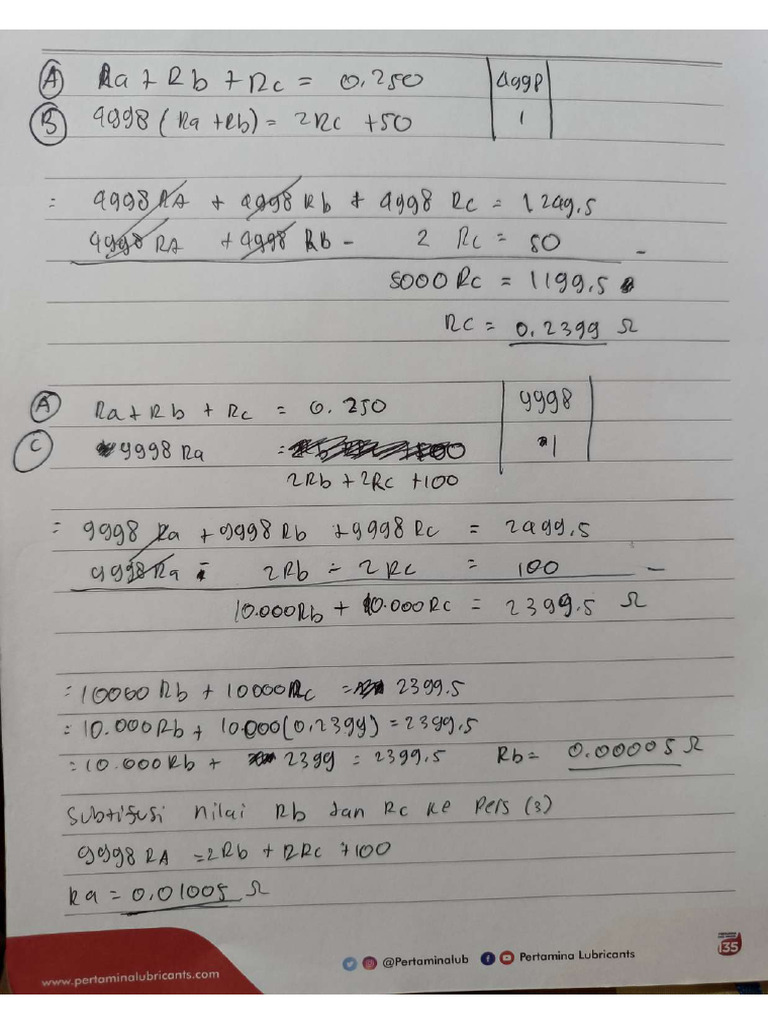 (A) Ra + Rb + Rc = 0.250 | 4998 |
(B) 4998 (Ra + Rb) = 2Rc + 50 | 1 |
= 4998 RA + 4998 Rb + 4998 Rc = 1249.5
4998 RA + 4998 Rb - 2 Rc = 50 -
5000 Rc = 1199.5
Rc = 0.2399 Ω
(A) Ra + Rb + Rc = 0.250 | 9998 |
(C) 9998 Ra = | 1 |
2Rb + 2Rc + 100
= 9998 Ra + 9998 Rb + 9998 Rc = 2499.5
9998 Ra - 2Rb - 2Rc = 100 -
10.000Rb + 10.000Rc = 2399.5 Ω
= 10000 Rb + 10000Rc = 2399.5
= 10.000Rb + 10.000(0,2399) = 2399.5
= 10.000Rb + 2399 = 2399.5 Rb = 0.00005 Ω
Subtifusi nilai Rb dan Rc ke Pers (3)
9998 RA = 2Rb + 2Rc + 100
Ra = 0.01005 Ω
@Pertaminalub Pertamina Lubricants
135
www.pertaminalubricants.com